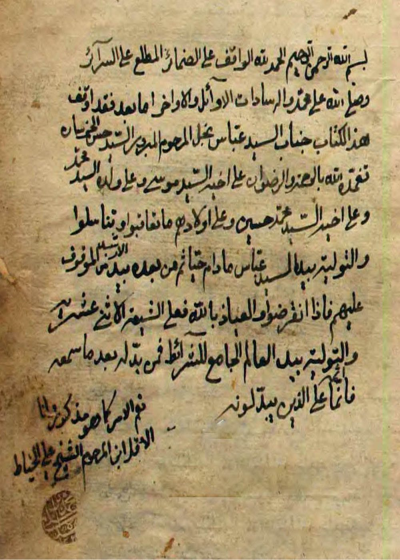 بسم الله الرحمن الرحيم الحمد لله الواقف على الضمائر المطلع على السرائر
وصلى الله على محمد واله سادات الاوائل والاواخر اما بعد فقد اوقف
هذا الكتاب جناب السيد عباس نجل المرحوم المبرور السيد حسن
تغمده الله بالرحمة والرضوان على اخيه السيد موسى وعلى ولده السيد محمد
وعلى اخيه السيد محمد حسين وعلى اولادهم ما تعاقبوا وتناسلوا
والتولية بيد السيد عباس مادام حيا ثم من بعده بيد الموقوف
عليهم فاذا انقرضوا والعياذ بالله فعلى الشيعة الاثنى عشرية
والتولية بيد العالم الجامع للشرائط فمن بدله بعد ما سمعه
فانما اثمه على الذين يبدلونه
نعم الامر كما هو مذكور وانا
الاقل ابن المرحوم الشيخ علي الخياط